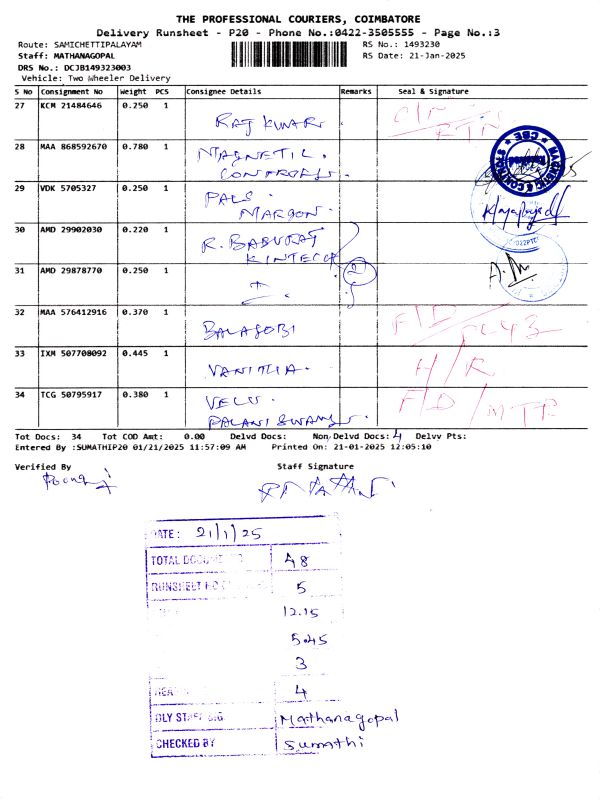 THE PROFESSIONAL COURIERS, COIMBATORE
Delivery Runsheet - P20 - Phone No.:0422-3505555 - Page No.:3
Route: SAMICHETTIPALAYAM RS No.: 1493230
Staff: MATHANAGOPAL RS Date: 21-Jan-2025
DRS No.: DCJB149323003
Vehicle: Two Wheeler Delivery
S No Consignment No Weight PCS Consignee Details Remarks Seal & Signature
27 KCM 21484646 0.250 1 RAJ KUMAR. RTN
28 MAA 868592670 0.780 1 MAGNETIC.
CONTROLS.
29 VDK 5705327 0.250 1 PALS.
MARGON.
30 AMD 29902030 0.220 1 R. BABURAJ
KINTECH
31 AMD 29878770 0.250 1 2
32 MAA 576412916 0.370 1 BALAGOBI F/D
33 IXM 507708092 0.445 1 VANITHA. H/R
34 TCG 50795917 0.380 1 VELU. F/D / MTP
PALANISWAMY.
Tot Docs: 34 Tot COD Amt: 0.00 Delvd Docs: Non Delvd Docs: 4 Delvv Pts:
Entered By :SUMATHIP20 01/21/2025 11:57:09 AM Printed On: 21-01-2025 12:05:10
Verified By Staff Signature
DATE: 21/1/25
TOTAL 48
RUNSHEET 5
12.15
5.45
3
4
DLY STAFF SIG. Mathanagopal
CHECKED BY Sumathi